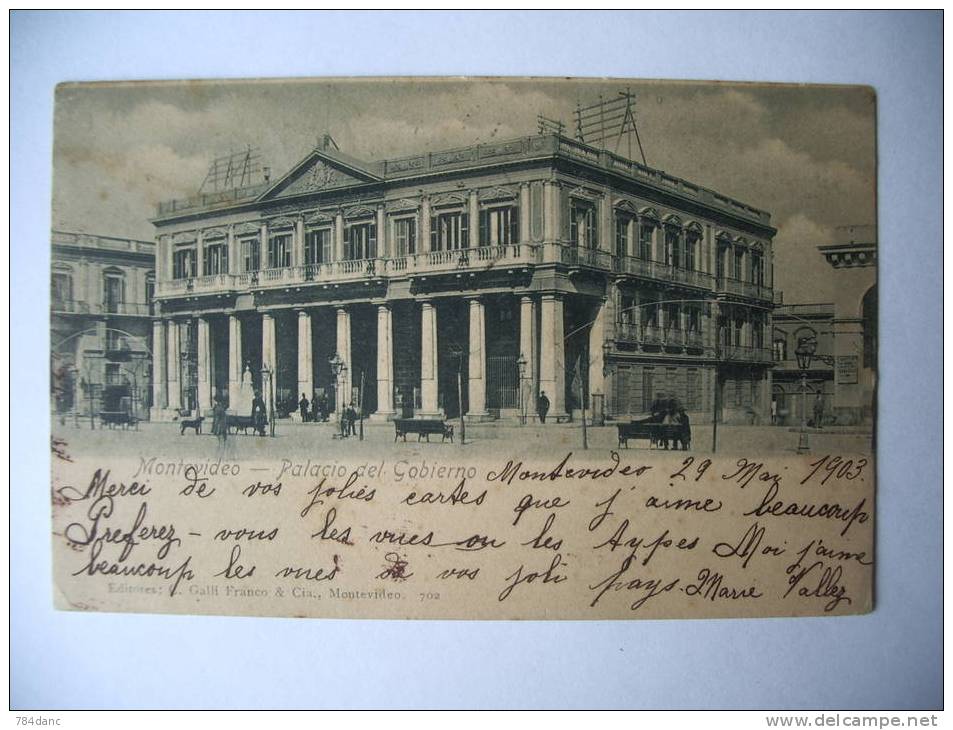 Montevideo — Palacio del Gobierno
Montevideo 29 Mai 1903.
Merci de vos jolies cartes que j'aime beaucoup
Preferez-vous les vues ou les types Moi j'aime
beaucoup les vues de vos joli pays. Marie Vallez
Editores: C. Galli Franco & Cia., Montevideo. 702
784danc
www.delcampe.net